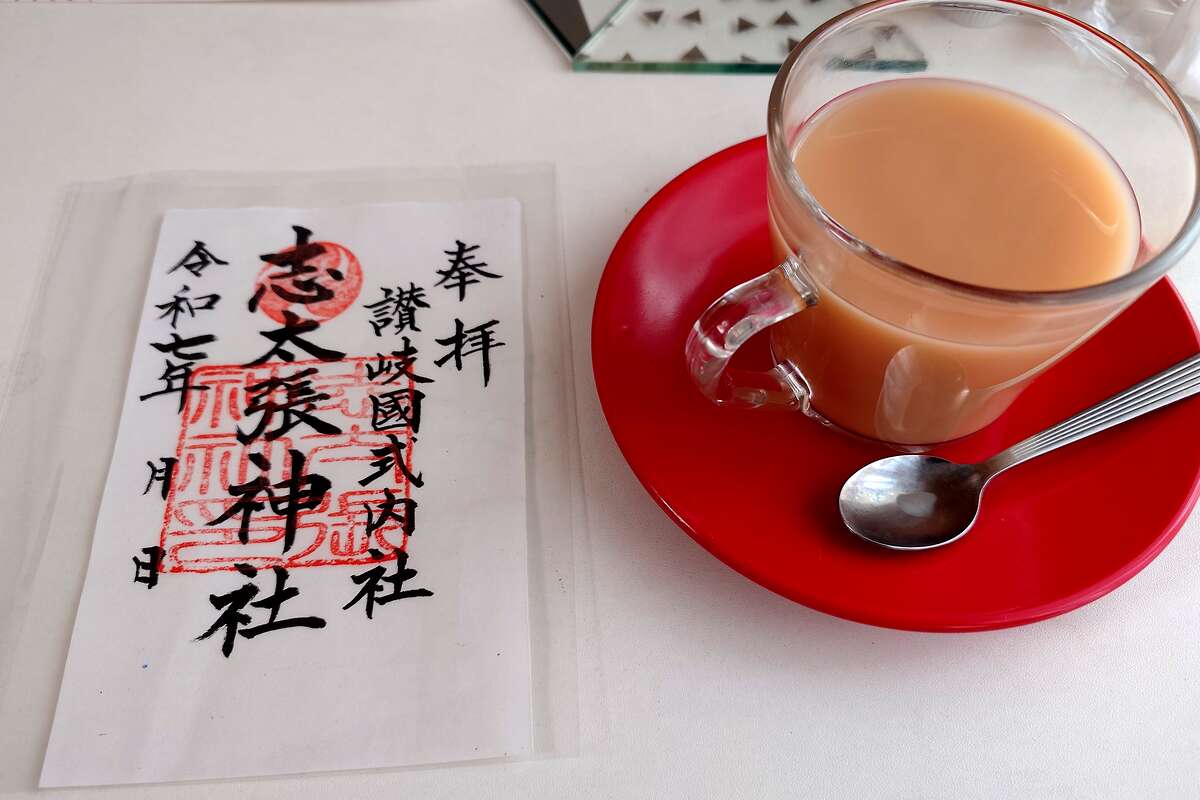 奉拝
讃岐國式内社
志太張神社
令和七年 月 日